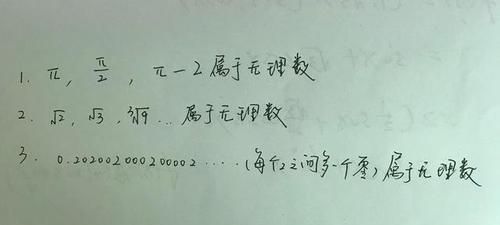 1. π, π/2, π-2属于无理数
2. √2, √3, ³√9...属于无理数
3. 0.20200200020002·····(每个2之间多一个零)属于无理数